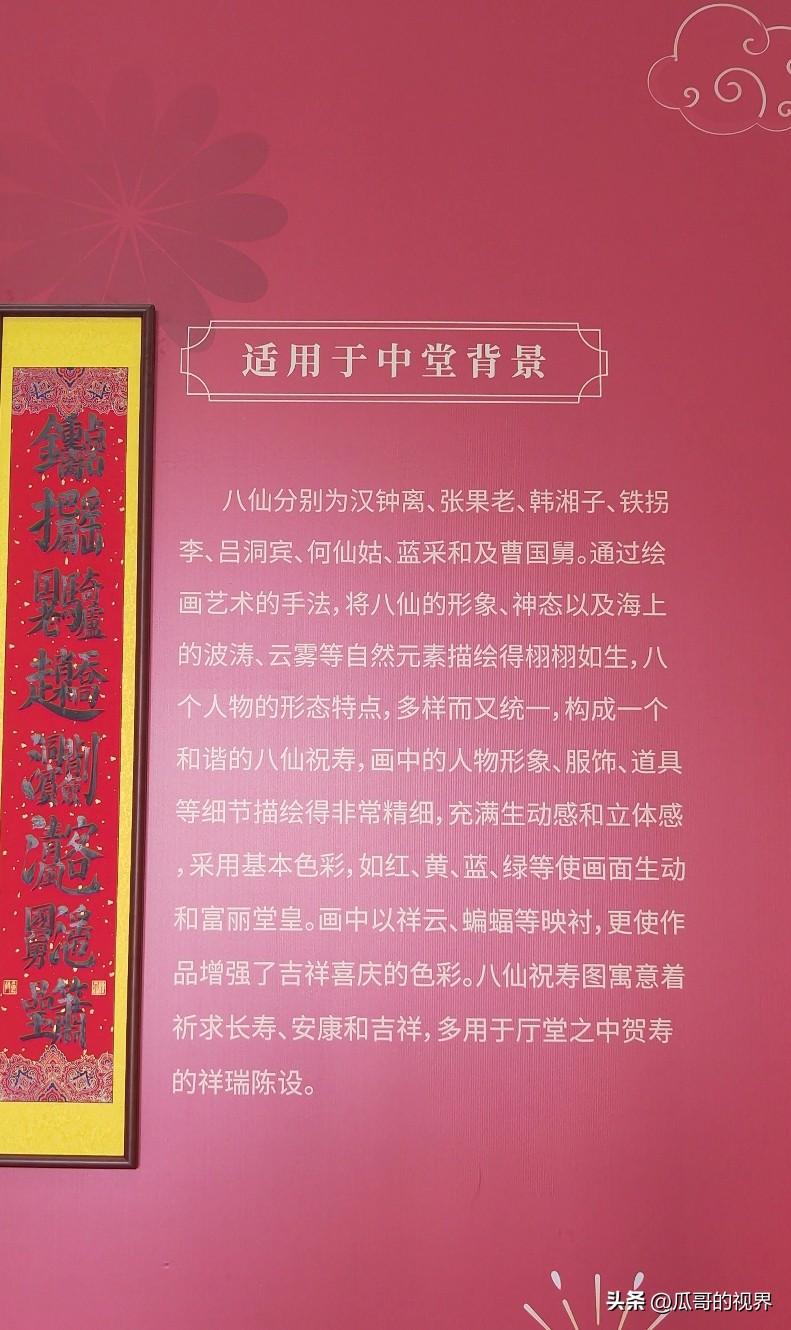 适用于中堂背景
八仙分别为汉钟离、张果老、韩湘子、铁拐
李、吕洞宾、何仙姑、蓝采和及曹国舅。通过绘
画艺术的手法，将八仙的形象、神态以及海上
的波涛、云雾等自然元素描绘得栩栩如生，八
个人物的形态特点，多样而又统一，构成一个
和谐的八仙祝寿，画中的人物形象、服饰、道具
等细节描绘得非常精细，充满生动感和立体感
，采用基本色彩，如红、黄、蓝、绿等使画面生动
和富丽堂皇。画中以祥云、蝙蝠等映衬，更使作
品增强了吉祥喜庆的色彩。八仙祝寿图寓意着
祈求长寿、安康和吉祥，多用于厅堂之中贺寿
的祥瑞陈设。
头条 @瓜哥的视界